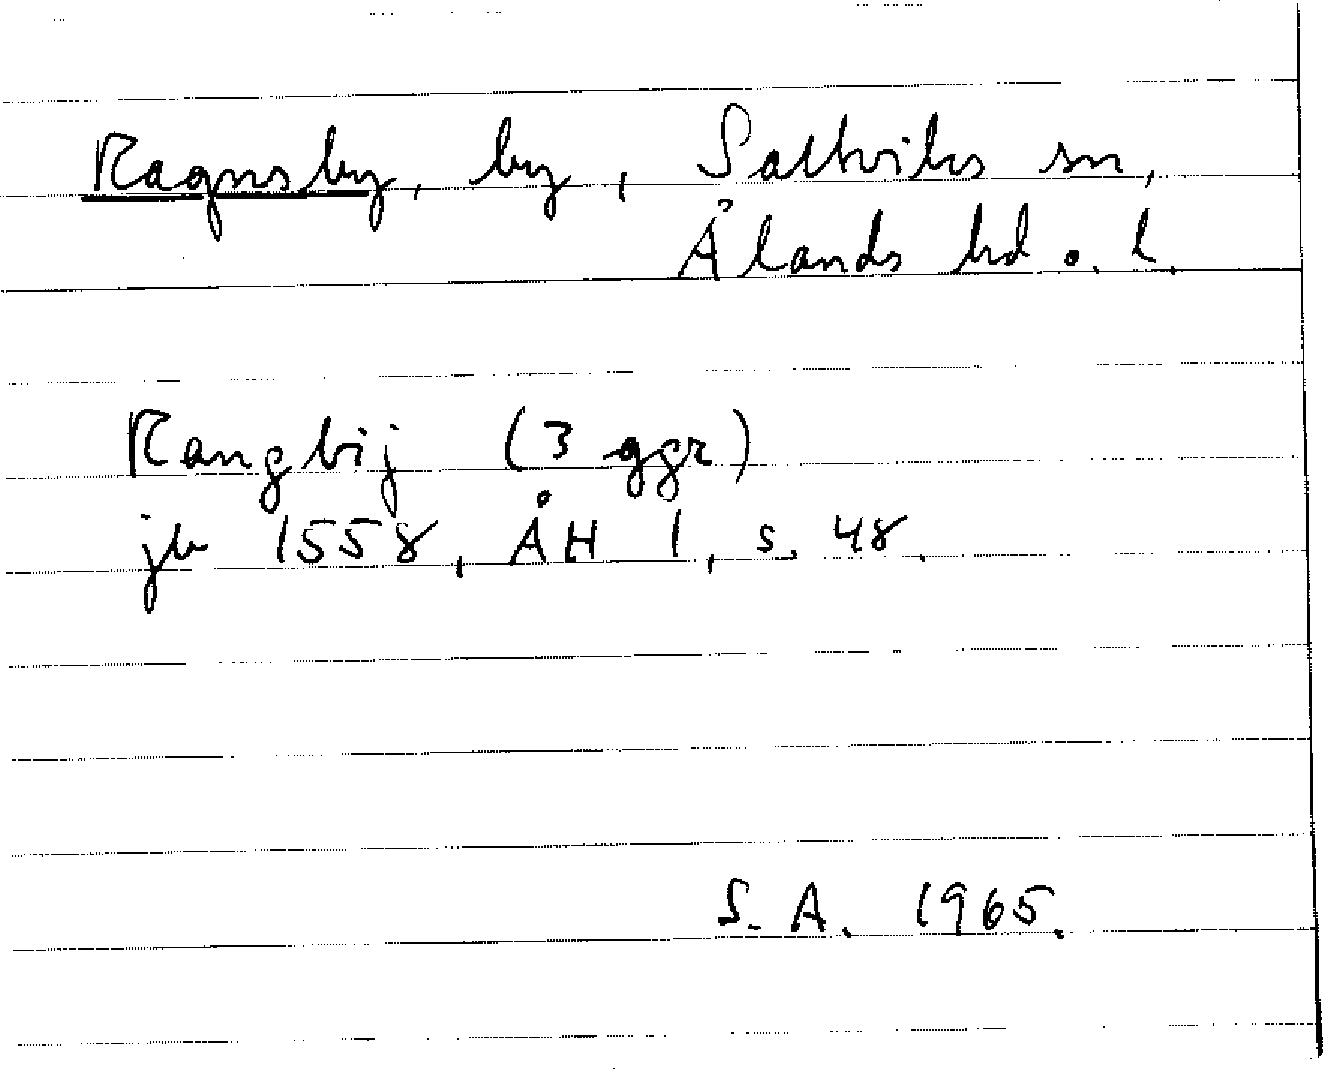 Ragnsby, by, Saltviks sn,
Ålands hd o. l.
Rangbij (3 ggr)
jb 1558, ÅH 1, s. 48.
S. A. 1965.